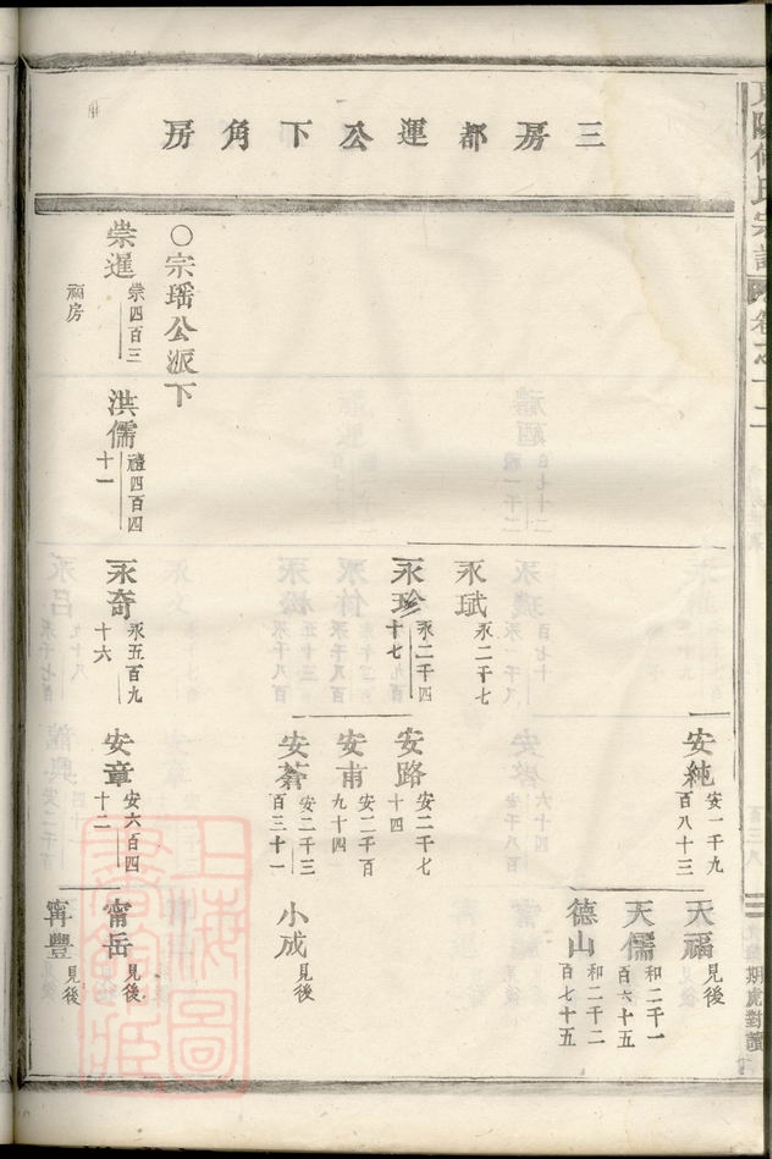 三房都運公下角房
安純
安一千九百八十三
天福
見後
天儒
和二千一百六十五
德山
和二千二百七十五
永珷
永二千七
永珍
永二千四十七
安路
安二千七十四
安甫
安二千百九十四
安蒼
安二千三百三十一
小成
見後
○宗瑤公派下
崇暹
崇四百三
洪儒
禮四百四十一
永奇
永五百九十六
安章
安六百四十二
甯岳
見後
甯豐
見後
上海圖書館藏